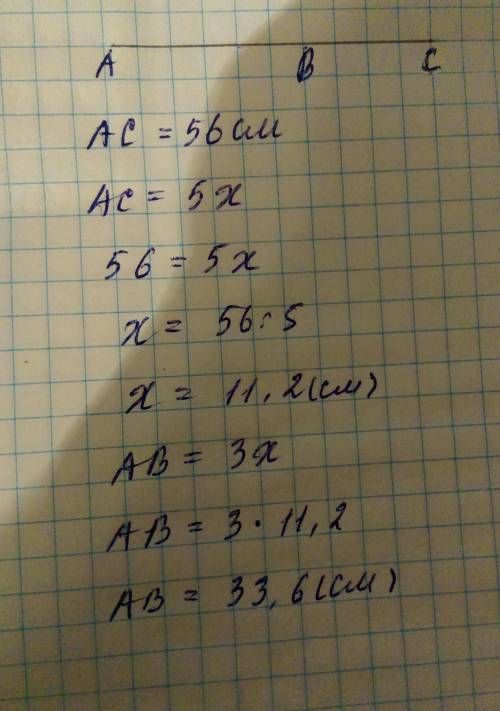 A B C
AC = 56 см
AC = 5x
56 = 5x
x = 56:5
x = 11,2 (см)
AB = 3x
AB = 3 · 11,2
AB = 33,6 (см)